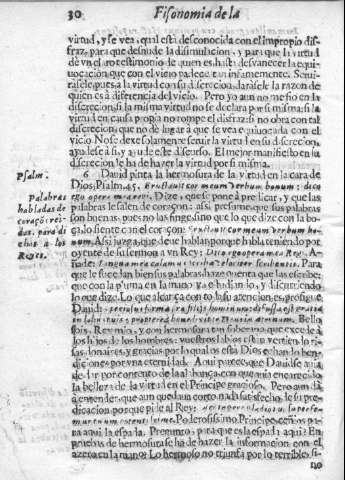 30 Fisonomia de la
virtud, y se vea, qual està desconocida con el impropio dis-
fraz, para que desnude la dissimulacion, y para que la virtud
dè vn claro testimonio de quien es, hasta desvanecer la equi-
uocacion que con el vicio padece tan infamemente. Serui-
rase despues à la virtud con su discrecion, darasele la razon de
quien es à diferencia del vicio. Pero yo aun no me fio en la
discrecion, si la misma virtud no se declara por si misma: si la
virtud en causa propia no rompe el disfraz: si no obra con tal
discrecion, que no dè lugar à que se vea equiuocada con el
vicio. No se dexe solamente seruir la virtud en su discrecion,
ayudese à si, y ayude este discurso. El mejor manifiesto en la
discrecion le ha de hazer la virtud por si misma.
Psalm.
6 Dauid pinta la hermosura de la virtud en la cara de
Dios, Psalm. 45. Eructauit cor meum verbum bonum: dico
ego opera mea Dize, que se pone à predicar, y que las
Palabras
habladas de
coraçō: rei-
das, para di-
chas a los
Reyes.
palabras le salen de coraçon: assi, presume, que sus palabras
son buenas, pues no las finge, sino que lo que dize con la bo-
ca, lo siente con el coraçon: Eructauit cor meum verbum bo-
num. Assi juzga, que deue hablar, porque habla teniendo por
oyente de su sermon à vn Rey: Dico ego opera mea Regi. A-
ñade: Lingua mea calamus scribæ velociter scribentis. Para
que le sucedan bien sus palabras, haze cuenta que las escribe:
que con la pluma en la mano ya
lo que dize. Lo que alcança con toda su atencion es, prosigue
Dauid: speciosus forma præ filijs hominum: diffusa est gratia
in labijs tuis, propterea benedixit te Deus in æternum. Bello
sois, Rey mio, y con hermosura tan soberana, que excede à
los hijos de los hombres: vuestros labios estàn vertiendo ri-
sas, donaires, y gracias, por lo qual os està Dios echando ben-
diciones por vna eternidad. Aqui parece, que Dauid se auia
de dar por contento de la alabança, con que auia encarecido
la belleza de la virtud en el Principe gracioso. Pero aun dà
à entender, que aun quedaua corto, nada satisfecho de su pre-
dicacion, porque pide al Rey:
Poderosissimo Principe, ceñios pa-
ra aqui la espada. Pregunto, para que es la espada aqui? En
pruebas de hermosura se ha de hazer la informacion con el
azero en la mano? Lo hermoso no triunfa por lo terrible, si-
no